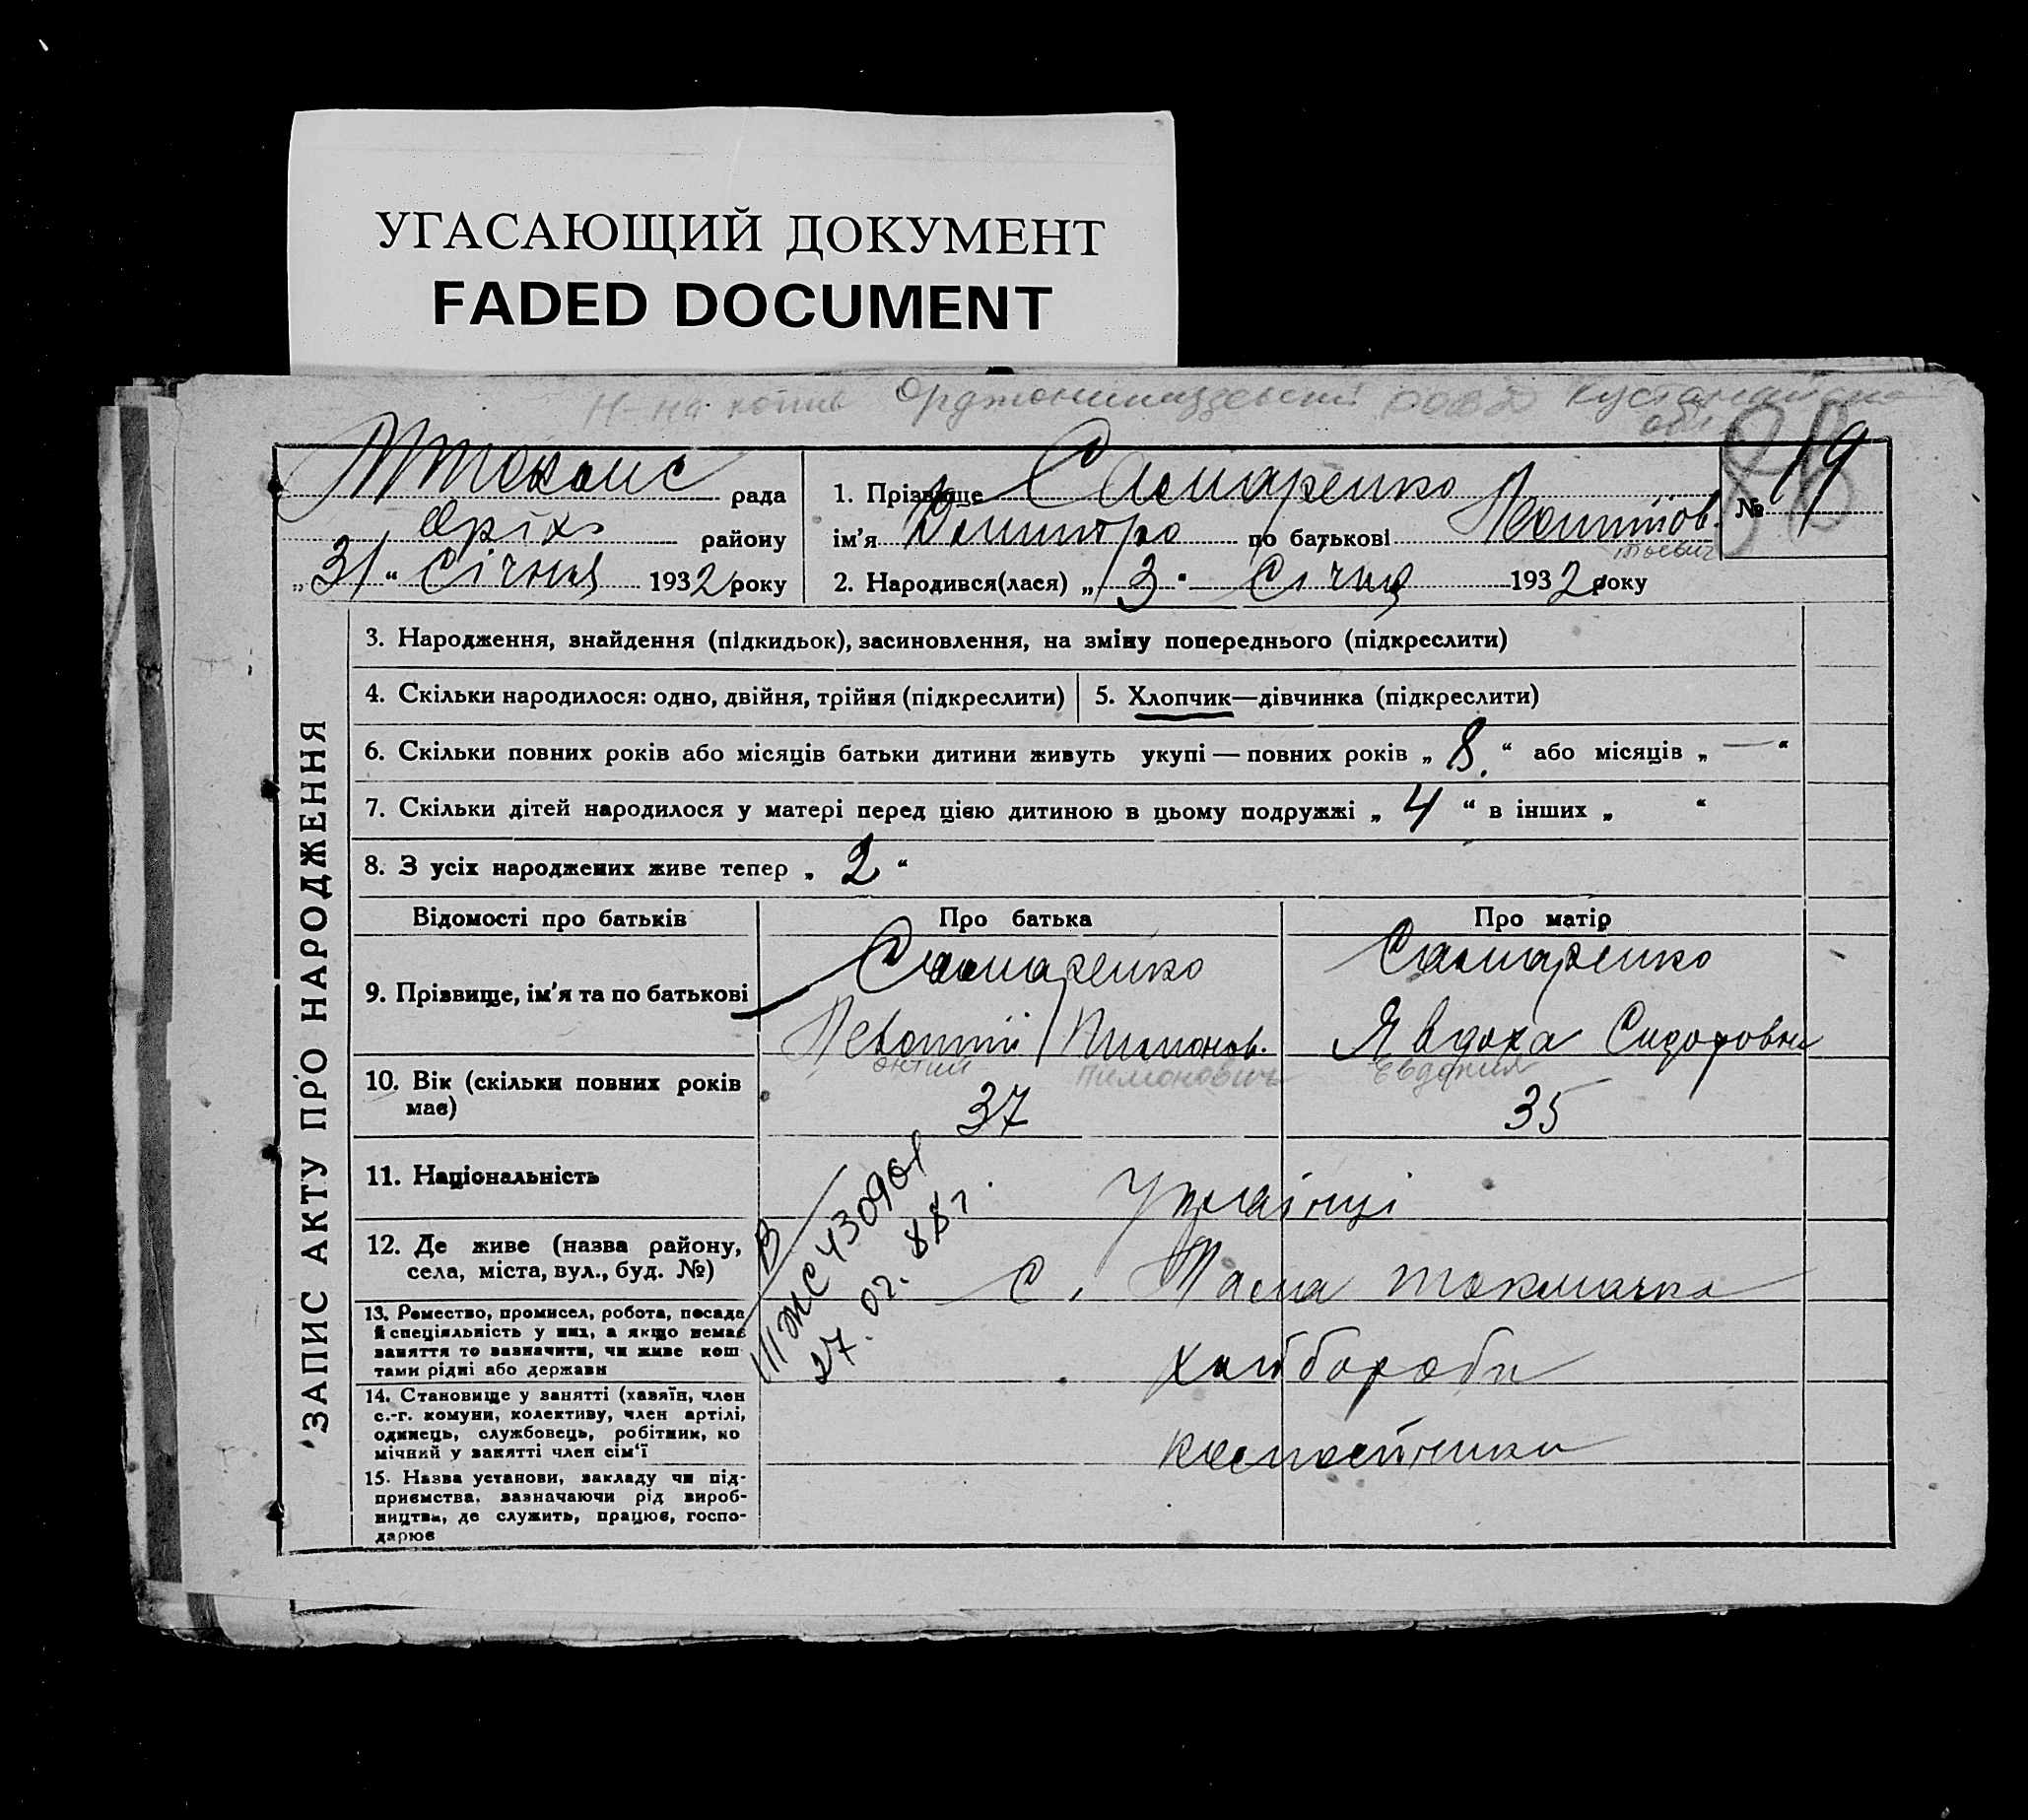 УГАСАЮЩИЙ ДОКУМЕНТ
FADED DOCUMENT
Н-на копив Орджоникидзевский Кустанайско
обл
88
рада
Оріхо району
„31“ Січня 1932 року
1. Прізвище Самаренко
ім'я Дмитро по батькові
тьевич
2. Народився(лася) „13“ Січня 1932 року
№ 19
ЗАПИС АКТУ ПРО НАРОДЖЕННЯ
3. Народження, знайдення (підкидьок), засиновлення, на зміну попереднього (підкреслити)
4. Скільки народилося: одно, двійня, трійня (підкреслити)
5. Хлопчик—дівчинка (підкреслити)
6. Скільки повних років або місяців батьки дитини живуть укупі — повних років „8.“ або місяців „—“
7. Скільки дітей народилося у матері перед цією дитиною в цьому подружжі „4“ в інших „ “
8. З усіх народжених живе тепер „2“
Відомості про батьків Про батька Про матір
9. Прізвище, ім'я та по батькові
Самаренко
Пимонов.
ентий Пимонович
Самаренко
Явдоха Сидоровна
Евдокия
10. Вік (скільки повних років
має)
37
35
11. Національність
Українці
12. Де живе (назва району,
села, міста, вул., буд. №)
с. Мала Токмачка
13. Ремество, промисел, робота, посада
й спеціяльність у них, а якщо немає
заняття то зазначити, чи живе кош-
тами рідні або держави
хлібороби
14. Становище у занятті (хазяїн, член
с.-г. комуни, колективу, член артілі,
одинець, службовець, робітник, по
мічний у занятті член сім'ї
колгоспники
15. Назва установи, закладу чи під-
приємства, зазначаючи рід вироб-
ництва, де служить, працює, госпо-
дарює
В
III ЖС 430901
27. 02. 88 г.